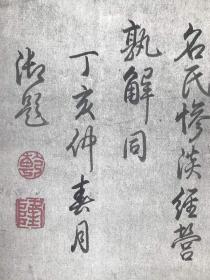 名氏惨淡经营
孰解同
丁亥仲春月
御题